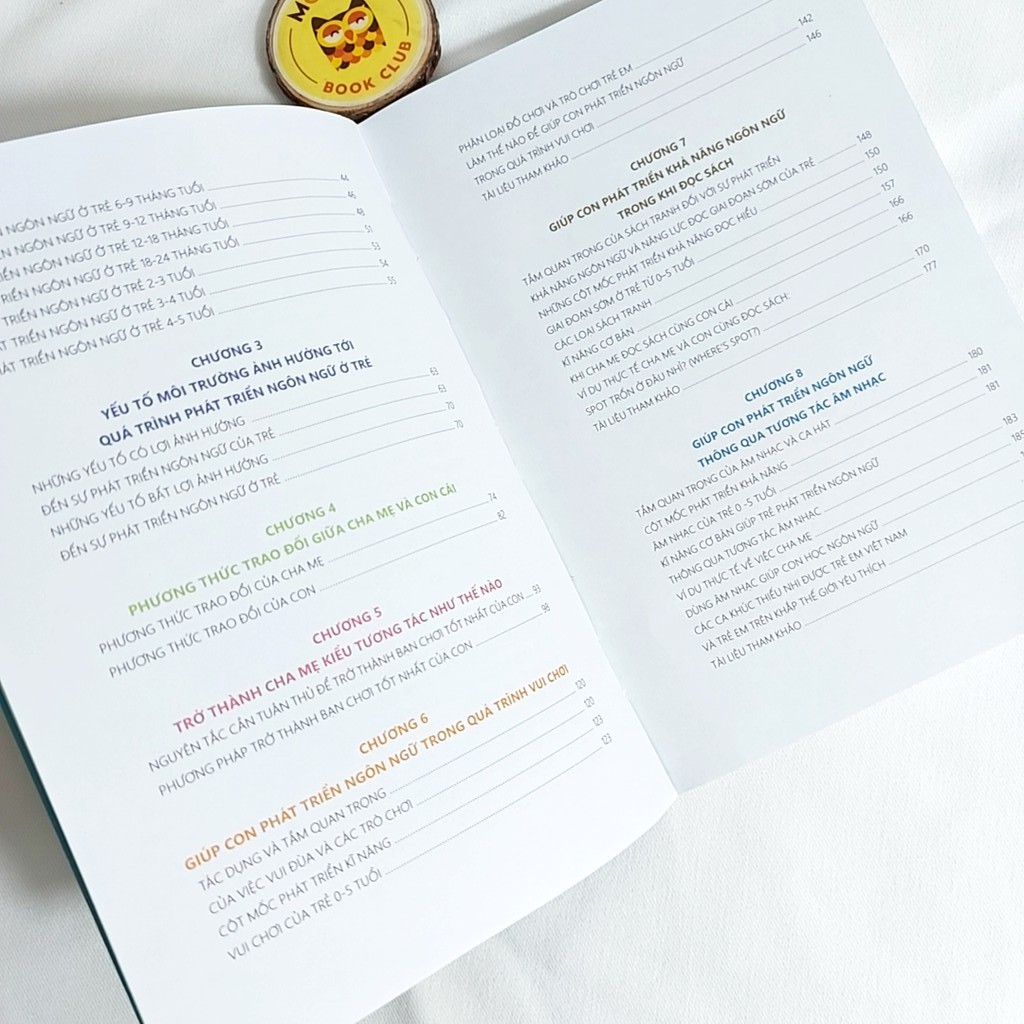 MO
BOOK CLUB
NGÔN NGỮ Ở TRẺ 6-9 THÁNG TUỔI 44
NGÔN NGỮ Ở TRẺ 9-12 THÁNG TUỔI 46
TRIỂN NGÔN NGỮ Ở TRẺ 12-18 THÁNG TUỔI 48
TRIỂN NGÔN NGỮ Ở TRẺ 18-24 THÁNG TUỔI 51
TRIỂN NGÔN NGỮ Ở TRẺ 2-3 TUỔI 53
TRIỂN NGÔN NGỮ Ở TRẺ 3-4 TUỔI 54
PHÁT TRIỂN NGÔN NGỮ Ở TRẺ 4-5 TUỔI 55
CHƯƠNG 3
YẾU TỐ MÔI TRƯỜNG ẢNH HƯỞNG TỚI
QUÁ TRÌNH PHÁT TRIỂN NGÔN NGỮ Ở TRẺ
NHỮNG YẾU TỐ CÓ LỢI ẢNH HƯỞNG 63
ĐẾN SỰ PHÁT TRIỂN NGÔN NGỮ CỦA TRẺ 63
NHỮNG YẾU TỐ BẤT LỢI ẢNH HƯỞNG 70
ĐẾN SỰ PHÁT TRIỂN NGÔN NGỮ Ở TRẺ 70
CHƯƠNG 4
PHƯƠNG THỨC TRAO ĐỔI GIỮA CHA MẸ VÀ CON CÁI
PHƯƠNG THỨC TRAO ĐỔI CỦA CHA MẸ 74
PHƯƠNG THỨC TRAO ĐỔI CỦA CON 82
CHƯƠNG 5
TRỞ THÀNH CHA MẸ KIỂU TƯƠNG TÁC NHƯ THẾ NÀO
NGUYÊN TẮC CẦN TUÂN THỦ ĐỂ TRỞ THÀNH BẠN CHƠI TỐT NHẤT CỦA CON 93
PHƯƠNG PHÁP TRỞ THÀNH BẠN CHƠI TỐT NHẤT CỦA CON 98
CHƯƠNG 6
GIÚP CON PHÁT TRIỂN NGÔN NGỮ TRONG QUÁ TRÌNH VUI CHƠI
TÁC DỤNG VÀ TẦM QUAN TRỌNG 120
CỦA VIỆC VUI ĐÙA VÀ CÁC TRÒ CHƠI 120
CỘT MỐC PHÁT TRIỂN KĨ NĂNG 123
VUI CHƠI CỦA TRẺ 0-5 TUỔI 123
PHÂN LOẠI ĐỒ CHƠI VÀ TRÒ CHƠI TRẺ EM
LÀM THẾ NÀO ĐỂ GIÚP CON PHÁT TRIỂN NGÔN NGỮ
TRONG QUÁ TRÌNH VUI CHƠI 142
TÀI LIỆU THAM KHẢO 146
CHƯƠNG 7
GIÚP CON PHÁT TRIỂN KHẢ NĂNG NGÔN NGỮ
TRONG KHI ĐỌC SÁCH
TẦM QUAN TRỌNG CỦA SÁCH TRANH ĐỐI VỚI SỰ PHÁT TRIỂN
KHẢ NĂNG NGÔN NGỮ VÀ NĂNG LỰC ĐỌC GIAI ĐOẠN SỚM CỦA TRẺ 148
NHỮNG CỘT MỐC PHÁT TRIỂN KHẢ NĂNG ĐỌC HIỂU 150
GIAI ĐOẠN SỚM Ở TRẺ TỪ 0-5 TUỔI 150
CÁC LOẠI SÁCH TRANH 157
KĨ NĂNG CƠ BẢN 166
KHI CHA MẸ ĐỌC SÁCH CÙNG CON CÁI 166
VÍ DỤ THỰC TẾ CHA MẸ VÀ CON CÙNG ĐỌC SÁCH:
SPOT TRỐN Ở ĐÂU NHỈ? (WHERE'S SPOT?) 170
TÀI LIỆU THAM KHẢO 177
CHƯƠNG 8
GIÚP CON PHÁT TRIỂN NGÔN NGỮ
THÔNG QUA TƯƠNG TÁC ÂM NHẠC
TẦM QUAN TRỌNG CỦA ÂM NHẠC VÀ CA HÁT 180
CỘT MỐC PHÁT TRIỂN KHẢ NĂNG 181
ÂM NHẠC CỦA TRẺ 0 -5 TUỔI 181
KĨ NĂNG CƠ BẢN GIÚP TRẺ PHÁT TRIỂN NGÔN NGỮ
THÔNG QUA TƯƠNG TÁC ÂM NHẠC 183
VÍ DỤ THỰC TẾ VỀ VIỆC CHA MẸ 185
DÙNG ÂM NHẠC GIÚP CON HỌC NGÔN NGỮ
CÁC CA KHÚC THIẾU NHI ĐƯỢC TRẺ EM VIỆT NAM
VÀ TRẺ EM TRÊN KHẮP THẾ GIỚI YÊU THÍCH
TÀI LIỆU THAM KHẢO